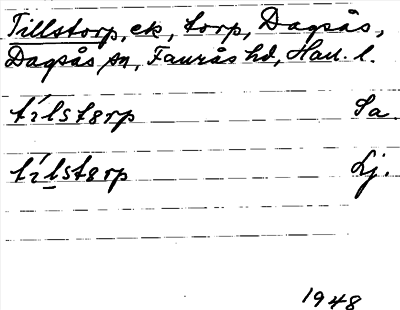 Tillstorp, ek, torp, Dagsås,
Dagsås sn, Faurås hd, Hall. l.
tílstorp Sa.
tílstorp Lj.
1948